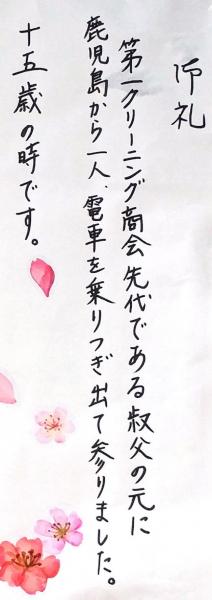 御礼
第一クリーニング商会先代である叔父の元に
鹿児島から一人、電車を乗りつぎ出て参りました。
十五歳の時です。